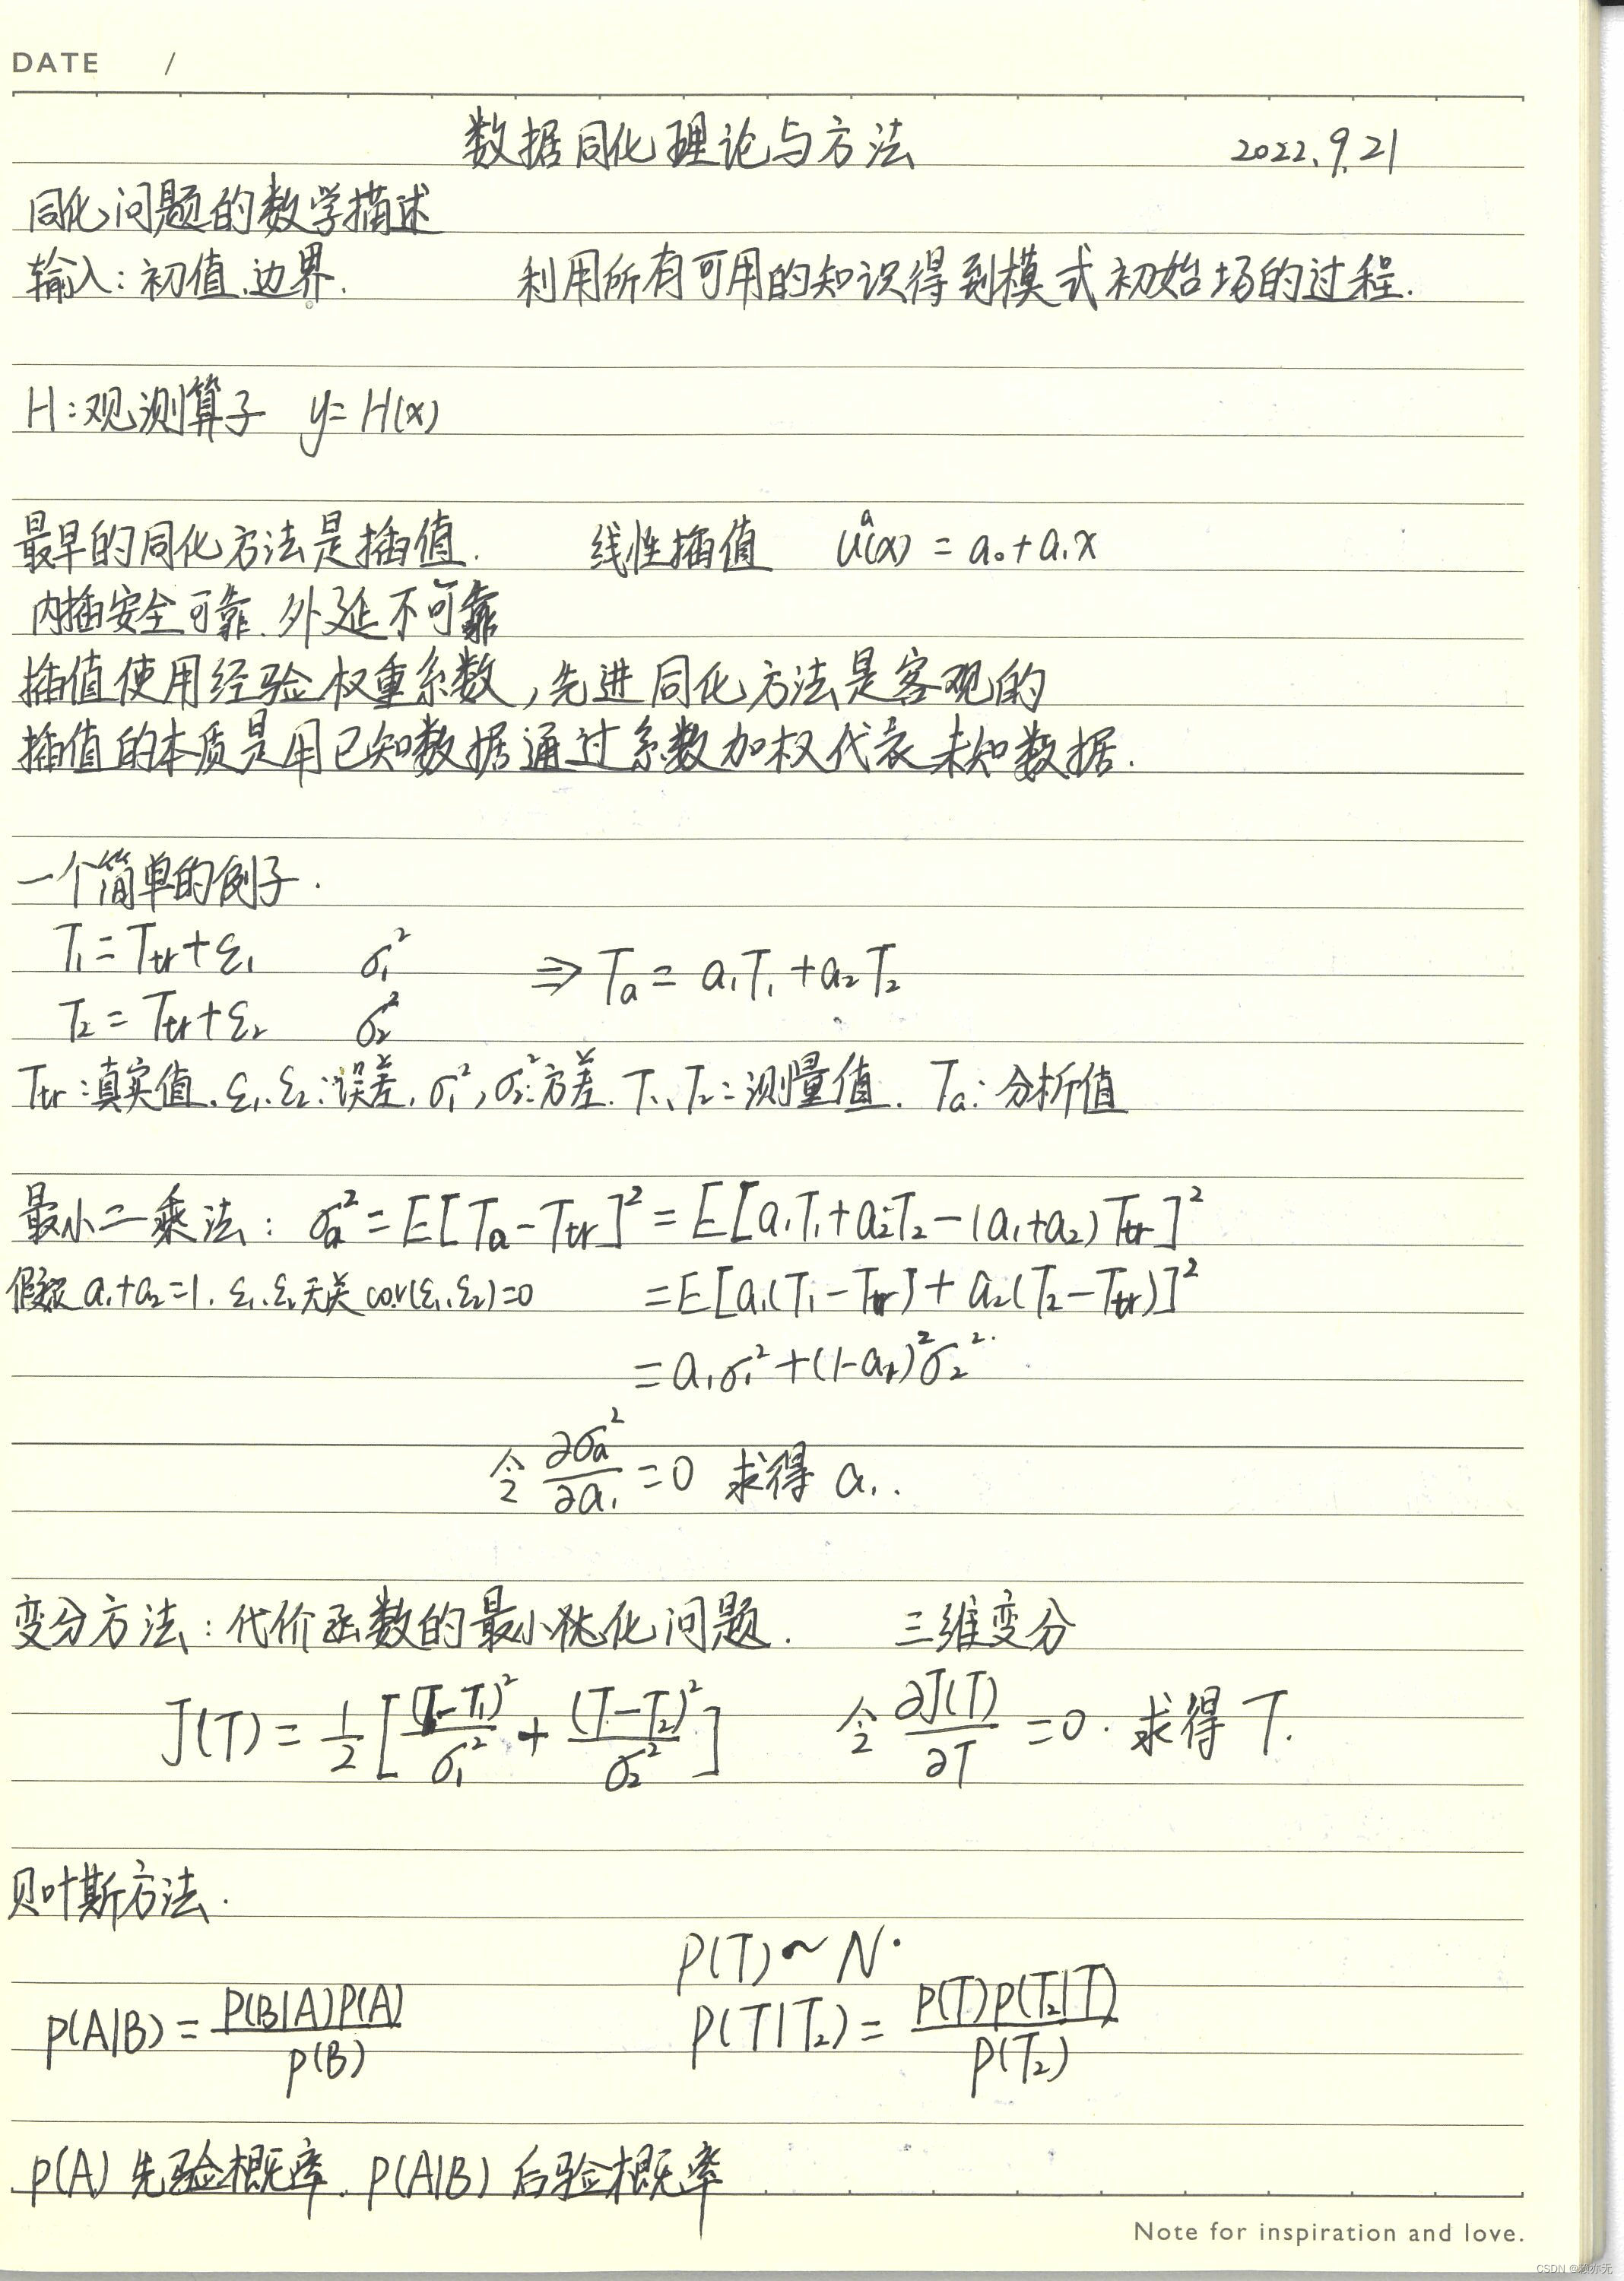 DATE /
数据同化理论与方法 2022.9.21
同化问题的数学描述
输入:初值、边界. 利用所有可用的知识得到模式初始场的过程.
H:观测算子 y=H(x)
最早的同化方法是插值. 线性插值 uᵃ(x) = a₀+a₁x
内插安全可靠、外延不可靠
插值使用经验权重系数,先进同化方法是客观的
插值的本质是用已知数据通过系数加权代表未知数据.
一个简单的例子.
T₁=Ttr+ε₁ σ₁² ⇒ Ta = a₁T₁+a₂T₂
T₂=Ttr+ε₂ σ₂²
Ttr:真实值、ε₁、ε₂:误差、σ₁²,σ₂²:方差. T₁、T₂:测量值. Ta:分析值
最小二乘法: σa²=E[Ta-Ttr]²=E[a₁T₁+a₂T₂-(a₁+a₂)Ttr]²
假设a₁+a₂=1. ε₁、ε₂无关 cov(ε₁、ε₂)=0 =E[a₁(T₁-Ttr)+a₂(T₂-Ttr)]²
=a₁σ₁²+(1-a₁)²σ₂².
令 ∂σa²/∂a₁ =0 求得 a₁.
变分方法:代价函数的最小优化问题. 三维变分
J(T)=1/2[(T-T₁)²/σ₁² + (T-T₂)²/σ₂²] 令 ∂J(T)/∂T =0. 求得 T.
贝叶斯方法.
P(T)~N.
P(A|B)=P(B|A)P(A)/P(B) P(T|T₂)=P(T)P(T₂|T)/P(T₂)
P(A)先验概率. P(A|B)后验概率
Note for inspiration and love.
CSDN @赖亦无